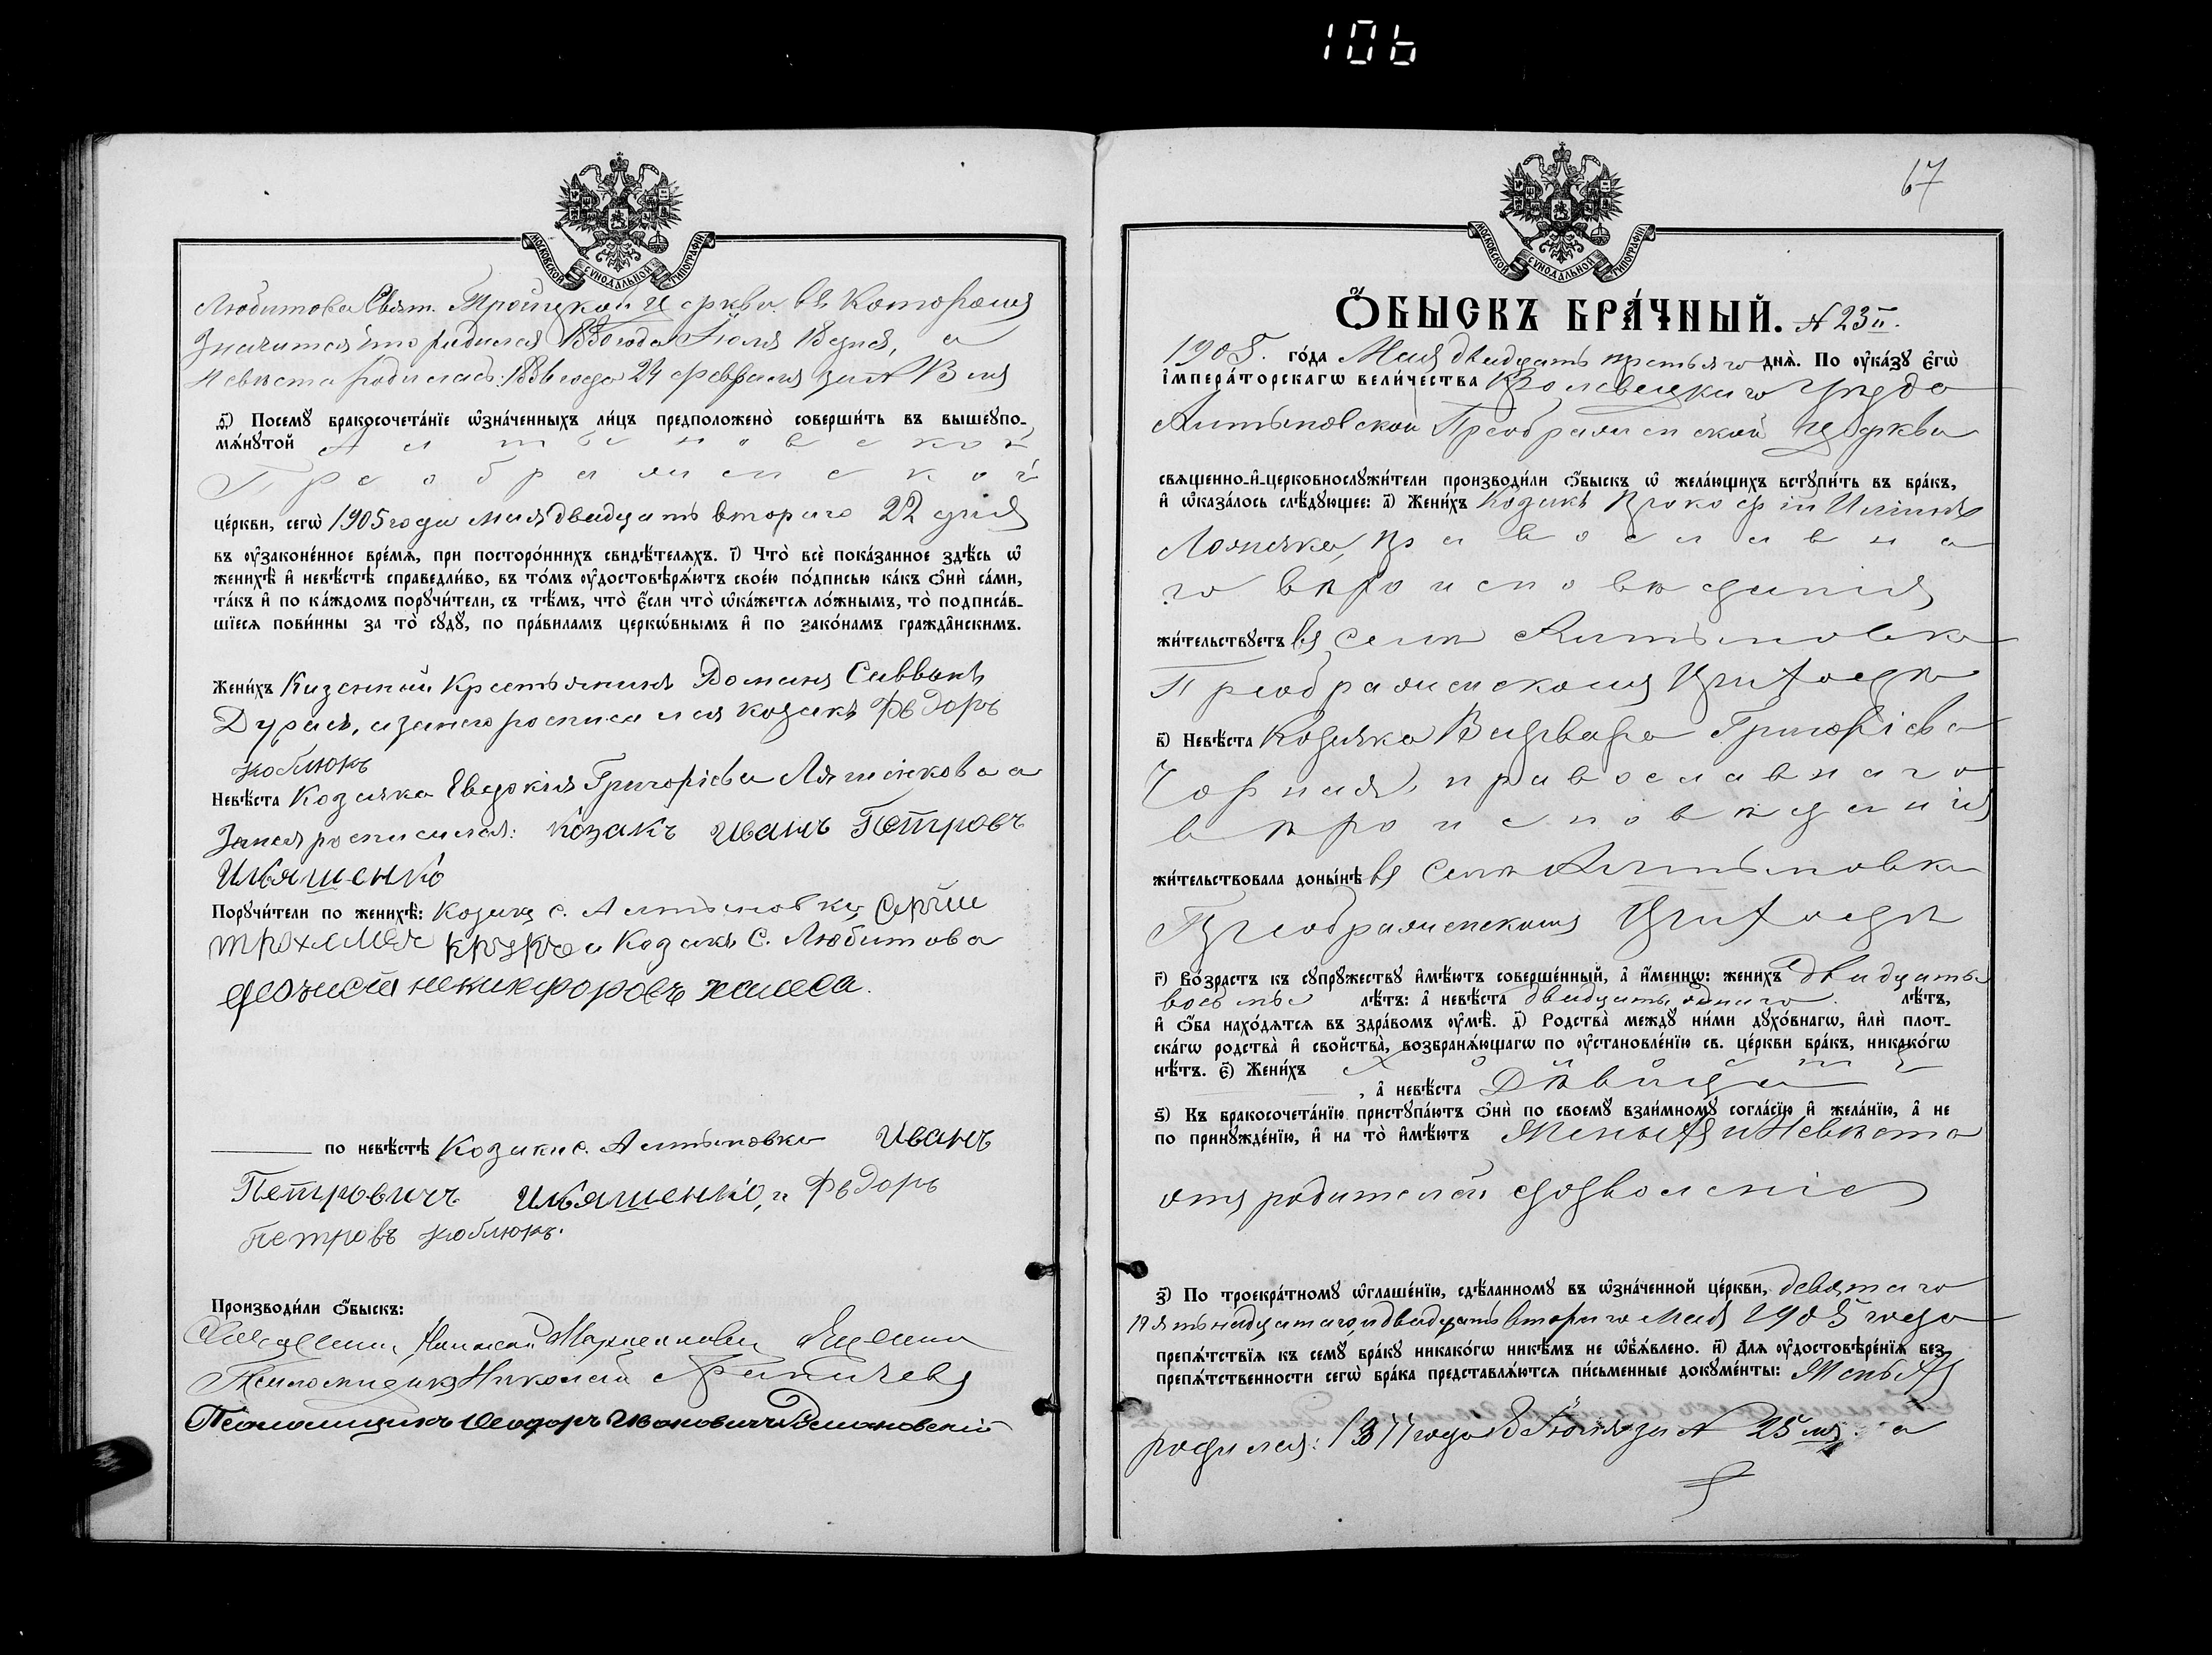 106
МОСКОВСКОЙ СѴНОДАЛЬНОЙ ТИПОГРАФІИ.
Любитова Свят. Троицкой Церкви въ которомъ
значится что родился 1880 года Іюля 18 дня, а
Невѣста родилась: 1886 года 24 февраля за № 13 мъ
ѳ҃) Посемꙋ бракосочета́нїе ѡзна́ченныхъ ли́цъ предположено̀ соверши́ть въ вышеꙋпо-
мѧ́нꙋтой Алтыновской
Преображенской
це́ркви, сегѡ̀ 1905 года мая двадцать втораго 22 дня
въ ᲂу҆законе́нное вре́мѧ, при посторо́ннихъ свидѣ́телѧхъ. і҃) Что̀ всѐ пока́занное здѣ́сь ѡ҆
женихѣ̀ и҆ невѣ́стѣ справедли́во, въ то́мъ ᲂу҆достовѣрѧ́ютъ свое́ю по́дписью ка́къ ѻ҆нѝ са́ми,
та́къ и҆ по ка́ждомъ порꙋчи́тели, съ тѣ́мъ, что̀ є҆́сли что̀ ѡ҆ка́жетсѧ ло́жнымъ, то̀ подписа́в-
шїесѧ пови́нны за то̀ сꙋдꙋ̀, по пра́виламъ церкѡ́внымъ и҆ по зако́намъ гражда̑нскимъ.
Жени́хъ Казенный Крестьянинъ Романъ Саввинъ
Дурасъ, а за него росписался козакъ Фѣдоръ
Коблюкъ
Невѣ́ста Козачка Евдокія Григоріева
За нея росписался: козакъ Иванъ Петровъ
Ильяшенко
Порꙋчи́тели по женихѣ̀: Козаки с. Алтыновки, Сергій
и Козакъ С. Любитова
никифоровъ халеса.
по невѣ́стѣ Козаки с. Алтыновки Иванъ
Петровичъ Ильяшенко, и Фѣдоръ
Петровъ Коблюкъ.
Производи́ли ѻ҆́быскъ:
Священникъ
Псаломщикъ Николай
Псаломщикъ Ѳеодоръ Ивановичъ Романовскій
67
МОСКОВСКОЙ СѴНОДАЛЬНОЙ ТИПОГРАФІИ.
Ѻ҆́БЫСКЪ БРА́ЧНЫЙ. № 23й.
1905. го́да Мая двадцать третьяго днѧ̀. По ᲂу҆ка́зꙋ є҆гѡ̀
і҆мпера́торскагѡ вели́чества Кролевецкаго уезда
Алтыновской Преображенской Церкви
свѧщенно-и҆-церковнослꙋжи́тели производи́ли ѻ҆́быскъ ѡ҆ жела́ющихъ встꙋпи́ть въ бра́къ,
и҆ ѡ҆каза́лось слѣ́дꙋющее: а҃) Жени́хъ Козакъ Прокофій
православна
го вѣроисповѣданія
жи́тельствꙋетъ въ селѣ Алтыновке
Преображенскомъ Приходѣ
в҃) Невѣ́ста Козачка Варвара Григоріева
Чорная, православнаго
вѣроисповѣданія
жи́тельствовала доны́нѣ въ Селѣ Алтыновке
Преображенскомъ Приходѣ
г҃) Во́зрастъ къ сꙋпрꙋ́жествꙋ и҆мѣ́ютъ соверше́нный, а҆ и҆́меннѡ: жени́хъ двадцать
восьмь лѣ́тъ: а҆ невѣ́ста двадцать одного. лѣ́тъ,
и҆ ѻ҆́ба нахо́дѧтсѧ въ здра́вомъ ᲂу҆мѣ̀. д҃) Родства̀ междꙋ̀ ни́ми дꙋхо́внагѡ, и҆лѝ плот-
ска́гѡ родства̀ и҆ свойства̀, возбранѧ́ющагѡ по ᲂу҆становле́нїю св. це́ркви бра́къ, никако́гѡ
нѣ́тъ. є҃) Жени́хъ холостъ
, а҆ невѣ́ста Дѣвица
ѕ҃) Къ бракосочета́нїю пристꙋпа́ютъ ѻ҆нѝ по своемꙋ̀ взаи́мномꙋ согла́сїю и҆ жела́нїю, а҆ не
по принꙋжде́нїю, и҆ на то̀ и҆мѣ́ютъ Женихъ и Невѣста
отъ родителей дозволеніе
з҃) По троекра́тномꙋ ѡ҆глаше́нїю, сдѣ́ланномꙋ въ ѡзна́ченной це́ркви, девятаго
пятьнадцатаго, и двадцать втораго Мая 1905 года
препѧ́тствїѧ къ семꙋ̀ бра́кꙋ никако́гѡ никѣ́мъ не ѡ҆б̾ѧ́влено. и҃) Длѧ ᲂу҆достовѣре́нїѧ без-
препѧ́тственности сегѡ̀ бра́ка представлѧ́ютсѧ пи́сьменные докꙋме́нты: Женихъ
родился: 1877 года 8 Іюля за № 25 мъ. а